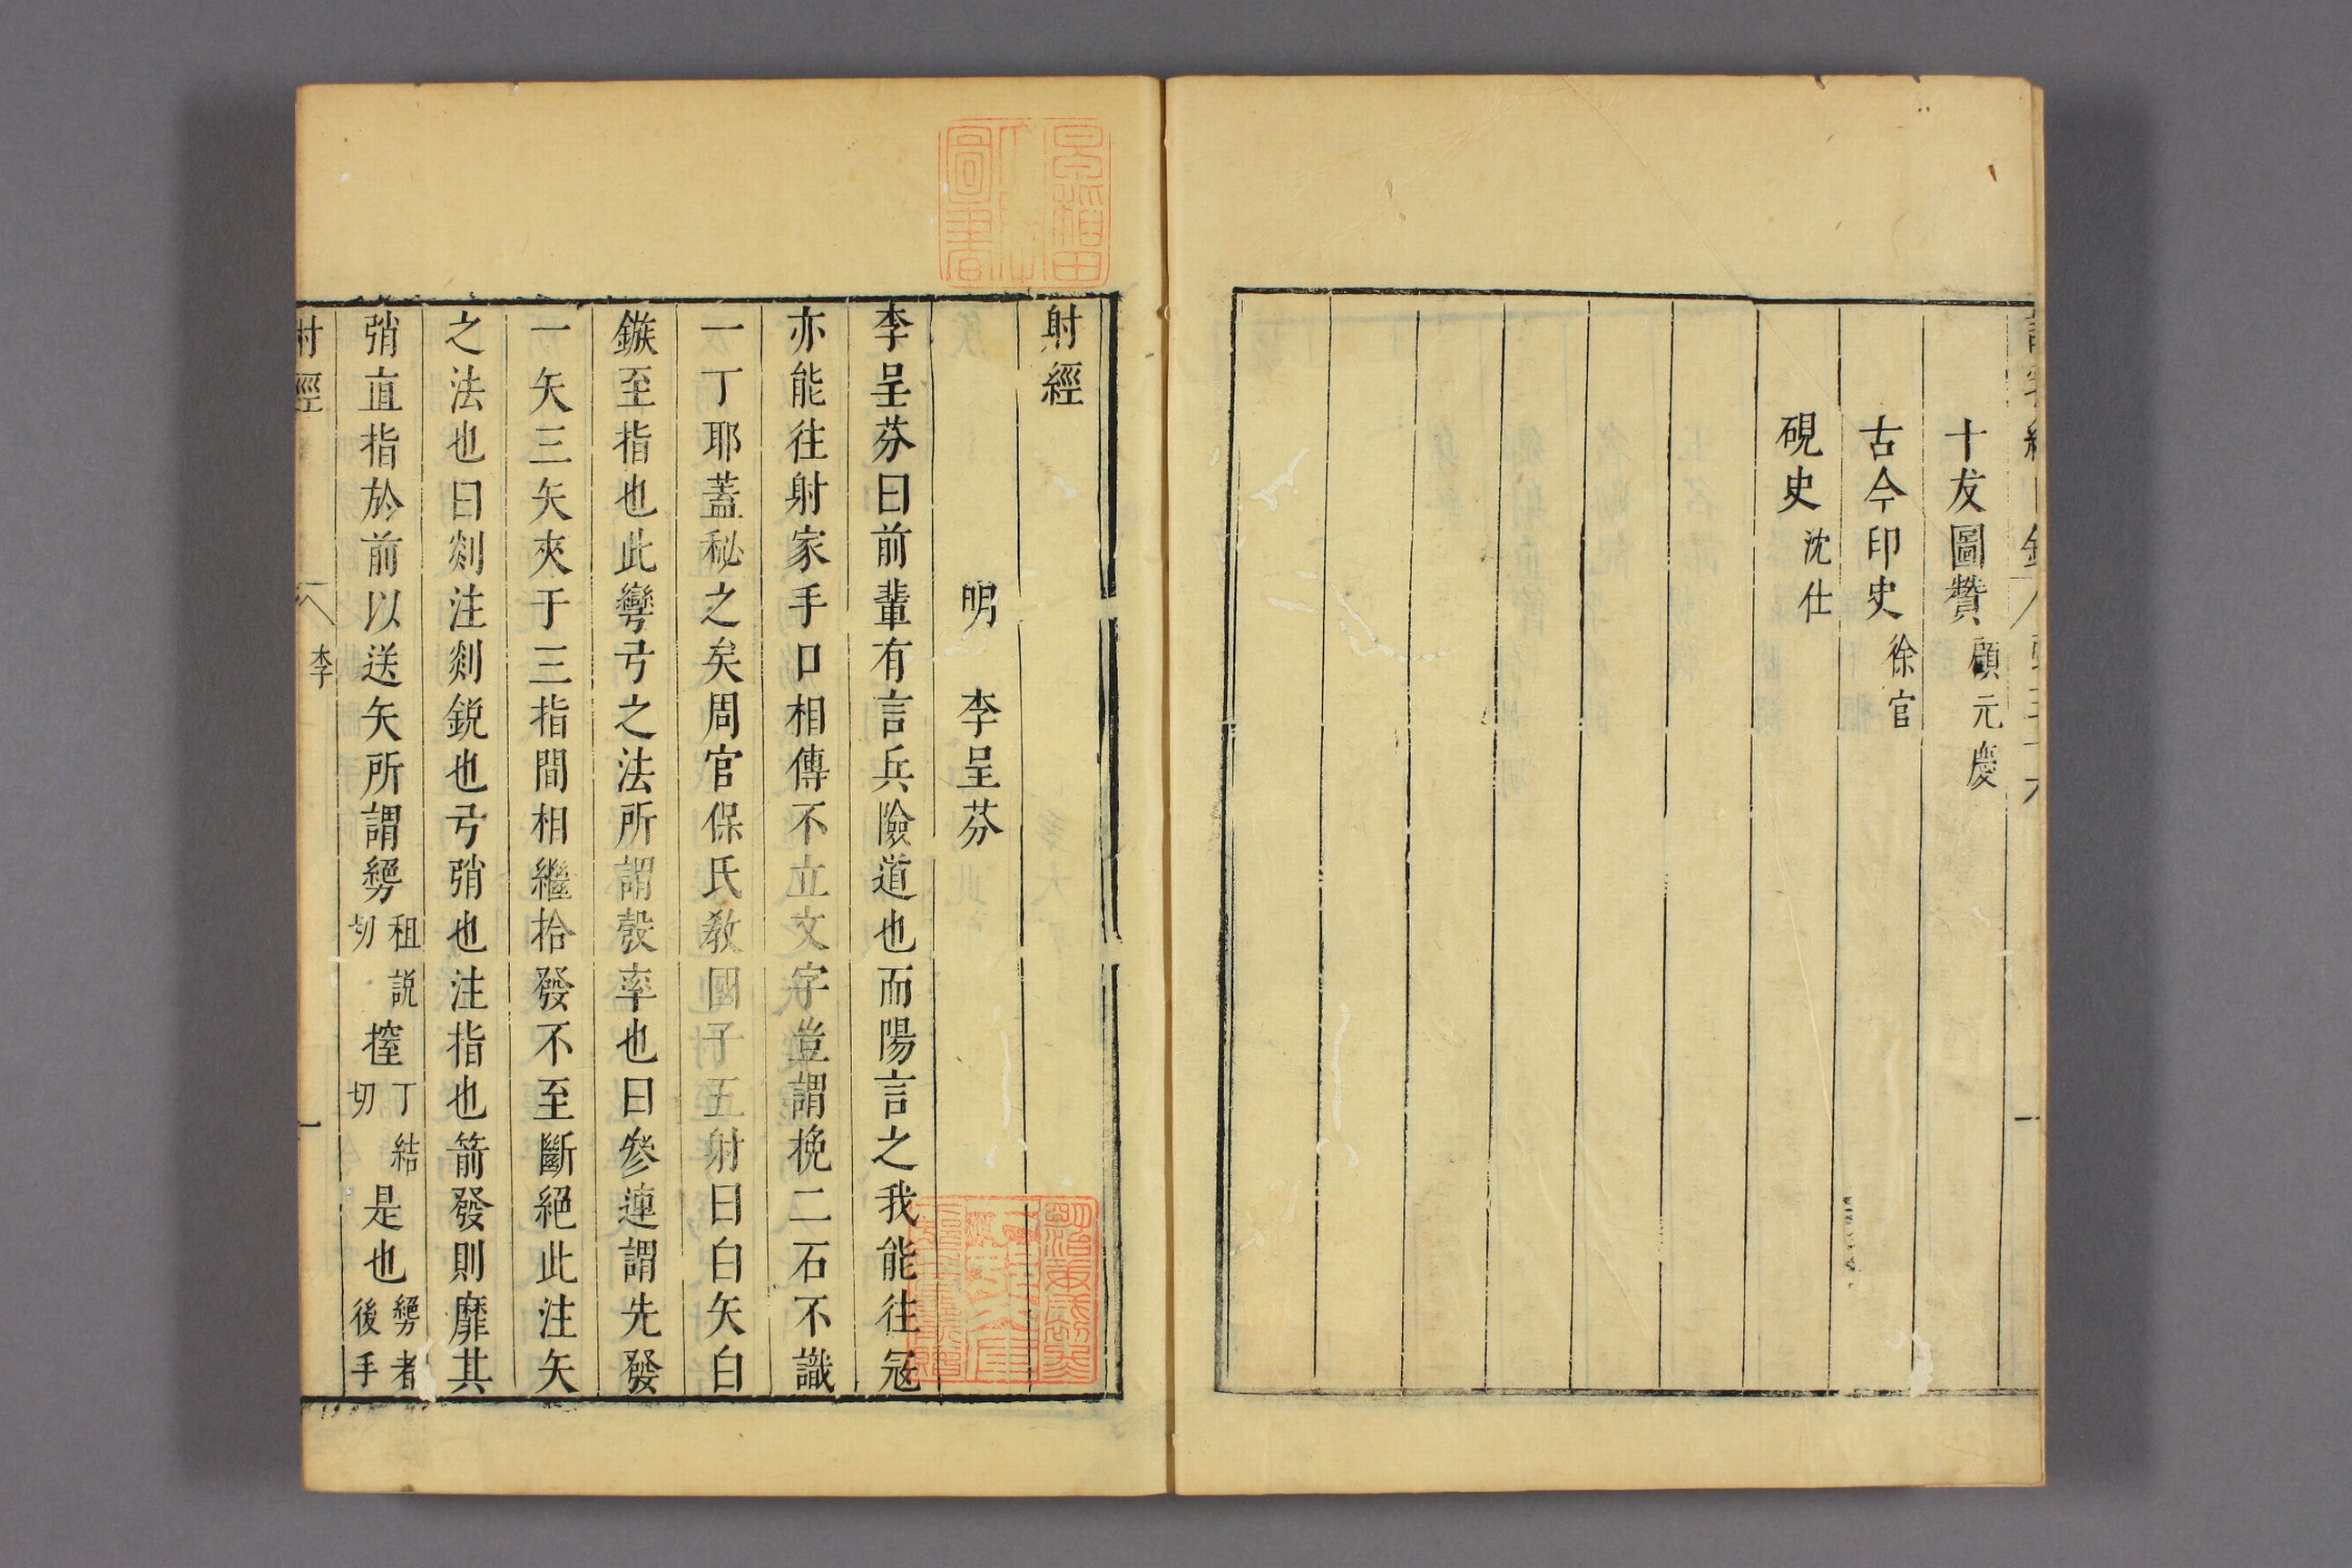 十友圖贊 顧元慶
古今印史 徐官
硯史 沈仕
射經
明 李呈芬
李呈芬曰前輩有言兵險道也而陽言之我能往寇
亦能往射家手口相傳不立文字豈謂挽二石不識
一丁耶蓋秘之矣周官保氏敎國子五射曰白矢白
鏃至指也此彎弓之法所謂彀率也曰參連謂先發
一矢三矢夾于三指間相繼拾發不至斷絕此注矢
之法也曰剡注剡銳也弓弰也注指也箭發則靡其
弰直指於前以送矢所謂㔢租説切㨖丁結切是也㔢者後手
射經 李 一